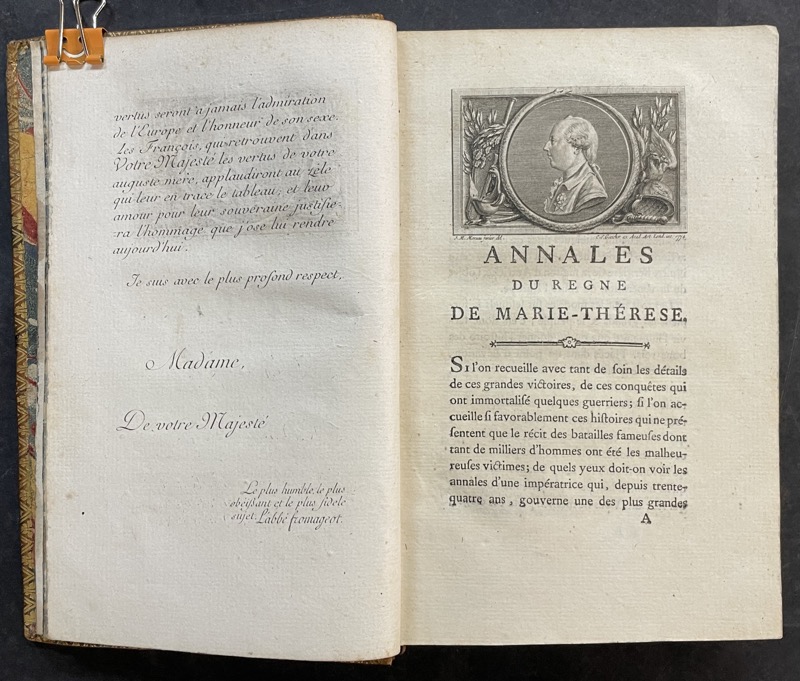 vertus seront à jamais l'admiration
de l'Europe et l'honneur de son sexe.
Les François, qui retrouvent dans
Votre Majesté les vertus de votre
auguste mere, applaudiront au zèle
qui leur en trace le tableau; et leur
amour pour leur souveraine justifie-
-ra l'hommage que j'ose lui rendre
aujourd'hui.
Je suis avec le plus profond respect,
Madame,
De votre Majesté
Le plus humble, le plus
obéissant et le plus fidele
sujet. L'abbé fromageot.
J. M. Moreau junior del.
1772
ANNALES
DU REGNE
DE MARIE-THÉRESE.
SI l'on recueille avec tant de soin les détails
de ces grandes victoires, de ces conquêtes qui
ont immortalisé quelques guerriers; si l'on ac-
cueille si favorablement ces histoires qui ne pré-
sentent que le récit des batailles fameuses dont
tant de milliers d'hommes ont été les malheu-
reuses victimes; de quels yeux doit-on voir les
annales d'une impératrice qui, depuis trente-
quatre ans, gouverne une des plus grandes
A